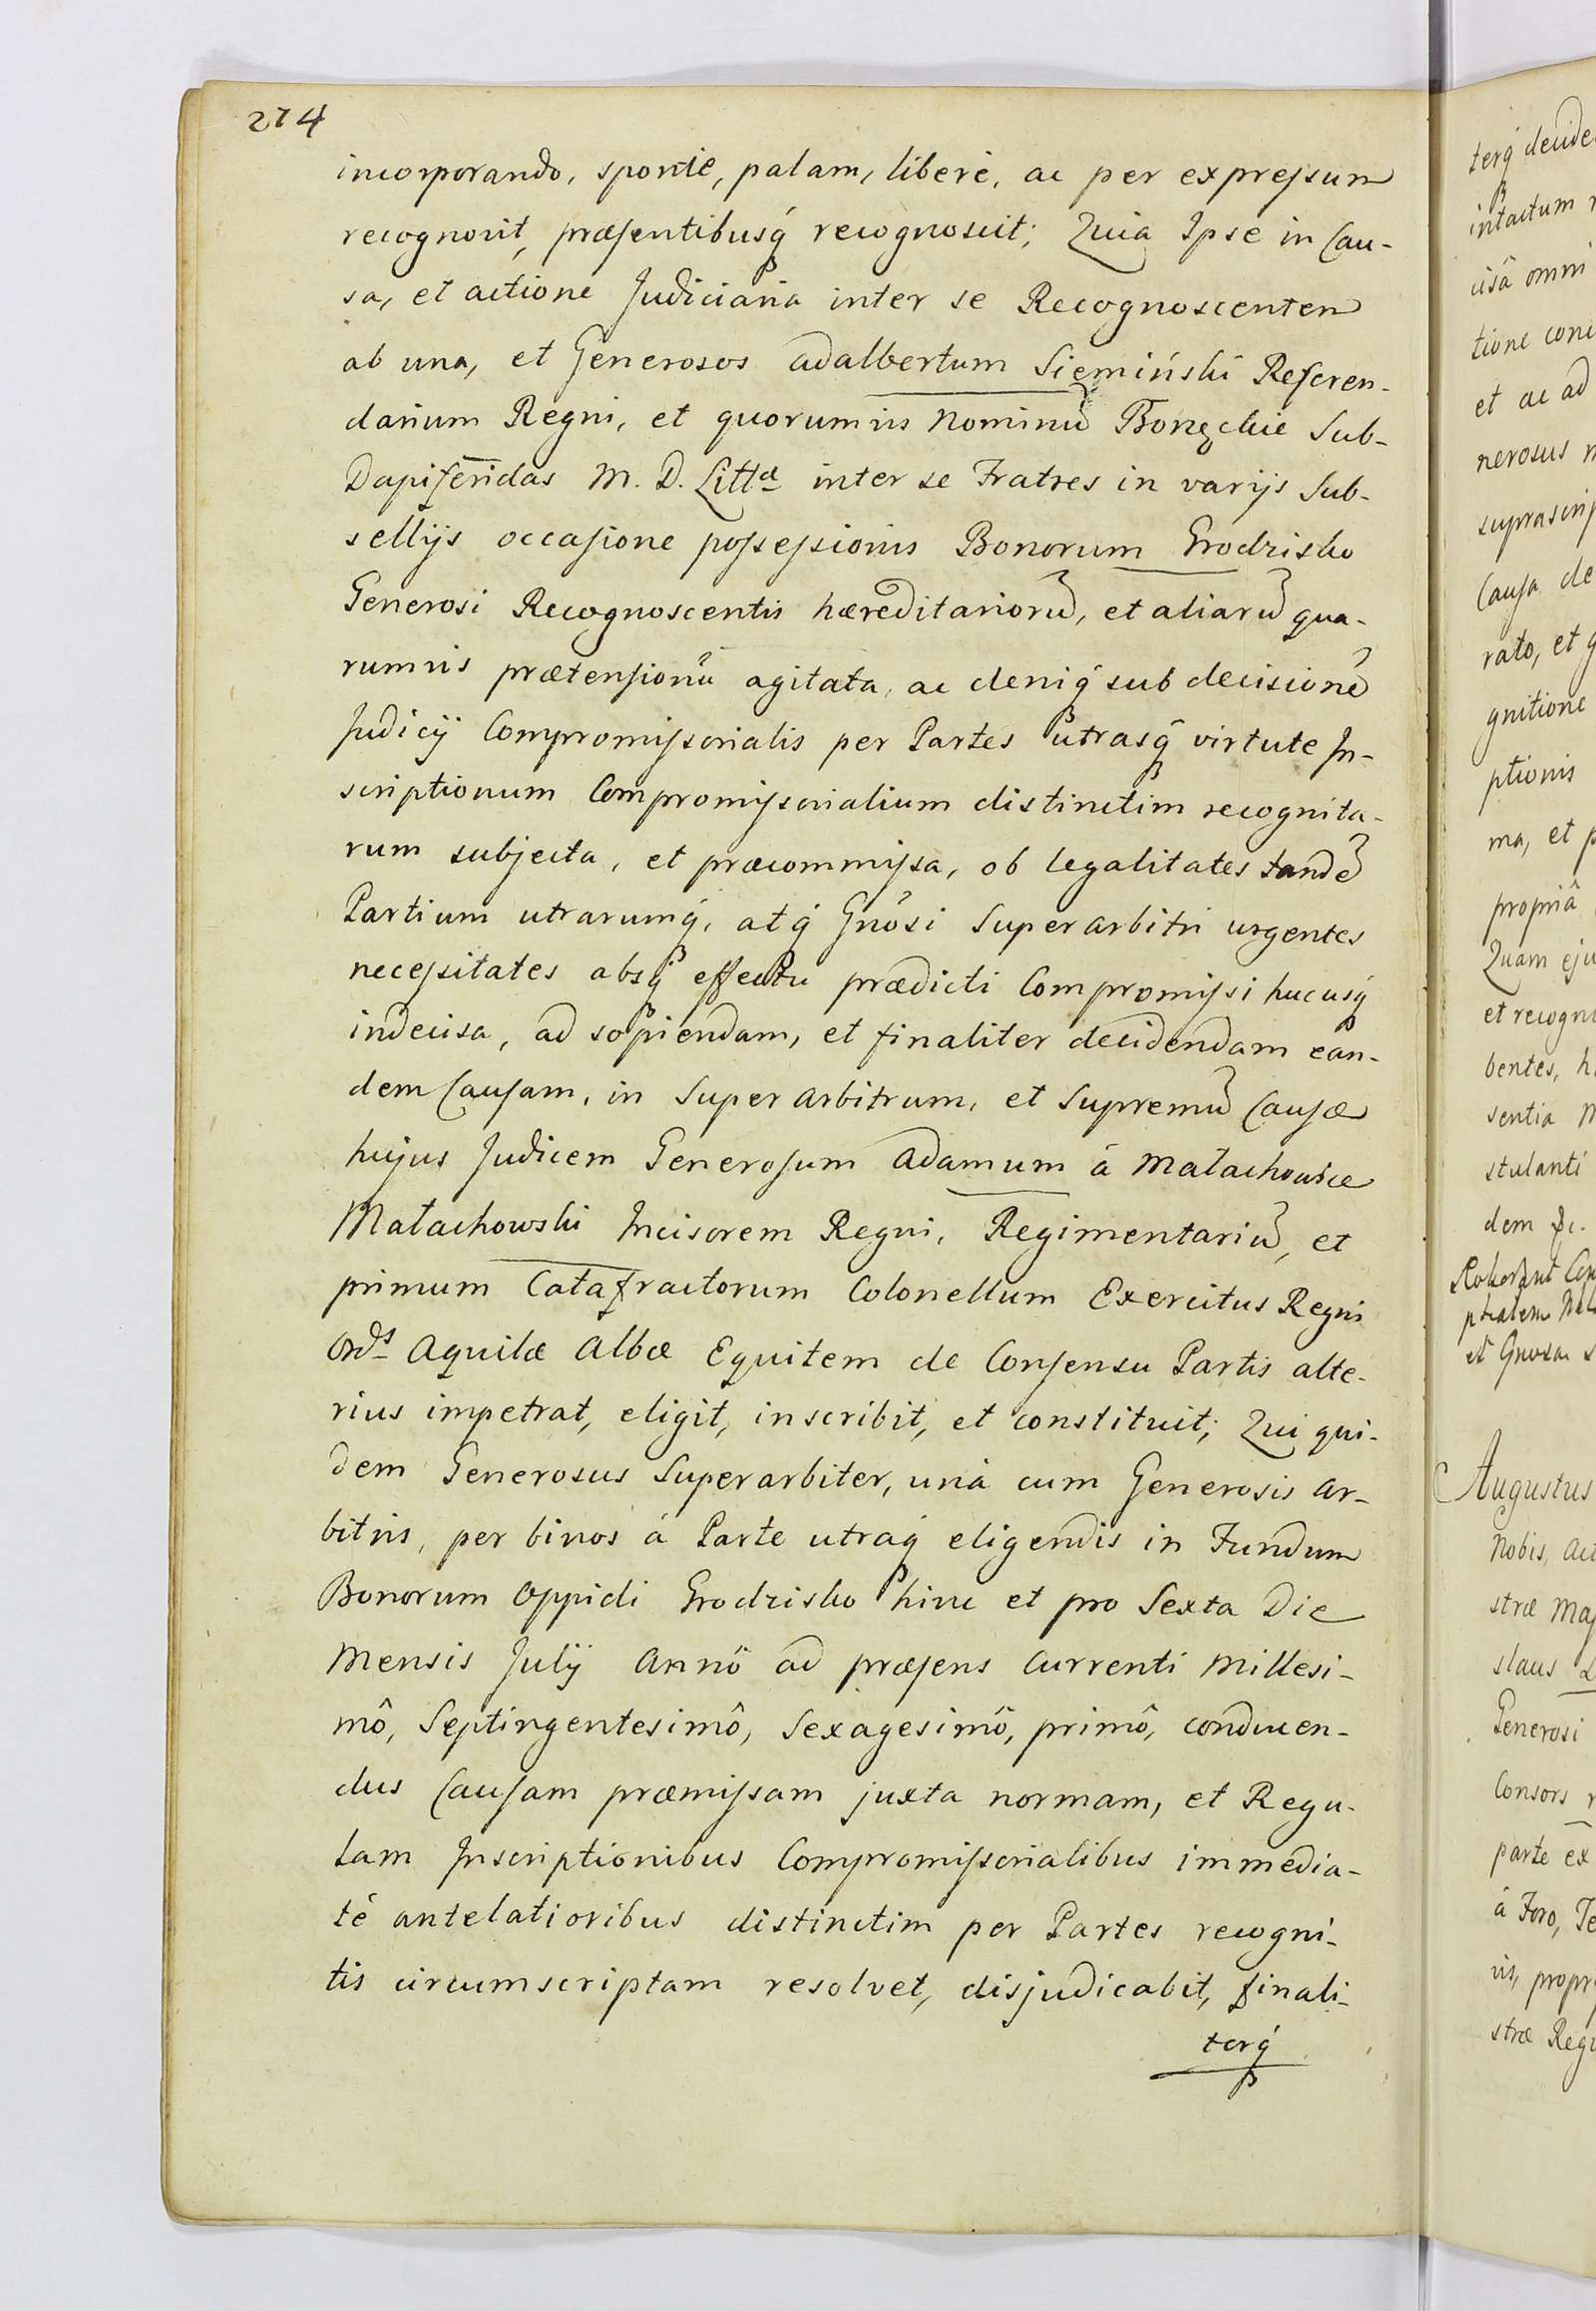 274
incorporando, sponte, palam, libere, ac per expressum
recognovit, præsentibusq́ recognoscit; Quia Ipse in Cau-
sa, et actione Judiciaria inter se Recognoscentem
ab una, et Generosos Adalbertum Siemiński Referen-
darium Regni, et quorumvis Nominũ
Sub-
Dapiferidas M. D. Littæ inter se Fratres in varijs Sub-
sellijs occasione possessionis Bonorum Grodzisko
Generosi Recognoscentis hæreditariorũ, et aliarũ qua-
rumvis prætensionũ agitata, ac deniq́ sub decisionẽ
Judicij Compromissorialis per Partes utrasq́ virtute In-
scriptionum Compromissorialium distinctim recognita-
rum subjecta, et præcommissa, ob legalitates tandẽ
Partium utrarumq́, atq́ Gnõsi Superarbitri urgentes
necessitates absq́ effectu prædicti Compromissi hucusq́
indecisa, ad sopiendam, et finaliter decidendam ean-
dem Causam, in Super Arbitrum, et Supremũ Causæ
hujus Judicem Generosum Adamum à Małachowice
Małachowski Incisorem Regni, Regimentariũ, et
primum Catafractorum Colonellum Exercitus Regni
Ordˢ Aquilæ Albæ Equitem de Consensu Partis alte-
rius impetrat, eligit, inscribit, et constituit; Qui qui-
dem Generosus Superarbiter, unà cum Generosis Ar-
bitris, per binos à Parte utraq́ eligendis in Fundum
Bonorum Oppidi Grodzisko hinc et pro Sexta Die
Mensis Julij Annô ad præsens Currenti Millesi-
mô, Septingentesimô, Sexagesimô, primô, conducen-
dus Causam præmissam juxta normam, et Regu-
lam Inscriptionibus Compromissorialibus immedia-
tè antelatioribus distinctim per Partes recogni-
tis circumscriptam resolvet, disjudicabit, finali-
terq́
terq́ decide
intactum
cisâ omni
tione
et ac ad
nerosus
suprascrip
Causa de
rato, et
gnitione
ptionis
ma, et
propriâ
Quam eju
et recogni
bentes,
sentia
stulanti
dem
Augustus
Nobis, Act
stræ Maj
slaus
Generosi
Consors
parte ex
à Foro, Te
is, propr
stræ Regi